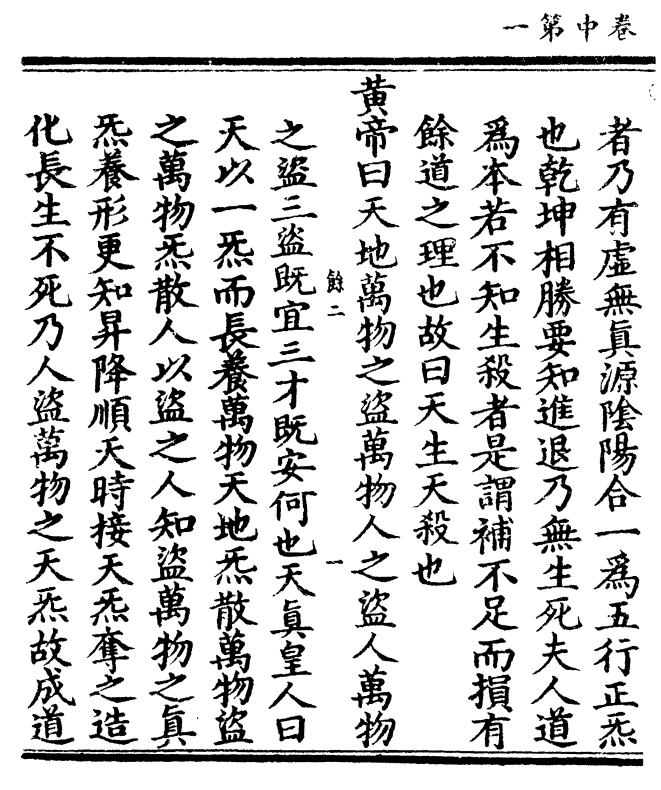 卷中第一
者乃有虛無眞源陰陽合一爲五行正炁
也乾坤相勝要知進退乃無生死夫人道
爲本若不知生殺者是謂補不足而損有
餘道之理也故曰天生天殺也
黃帝曰天地萬物之盜萬物人之盜人萬物
餘二
一
之盜三盜既宜三才既安何也天眞皇人曰
天以一炁而長養萬物天地炁散萬物盜
之萬物炁散人以盜之人知盜萬物之眞
炁養形更知昇降順天時接天炁奪之造
化長生不死乃人盜萬物之天炁故成道